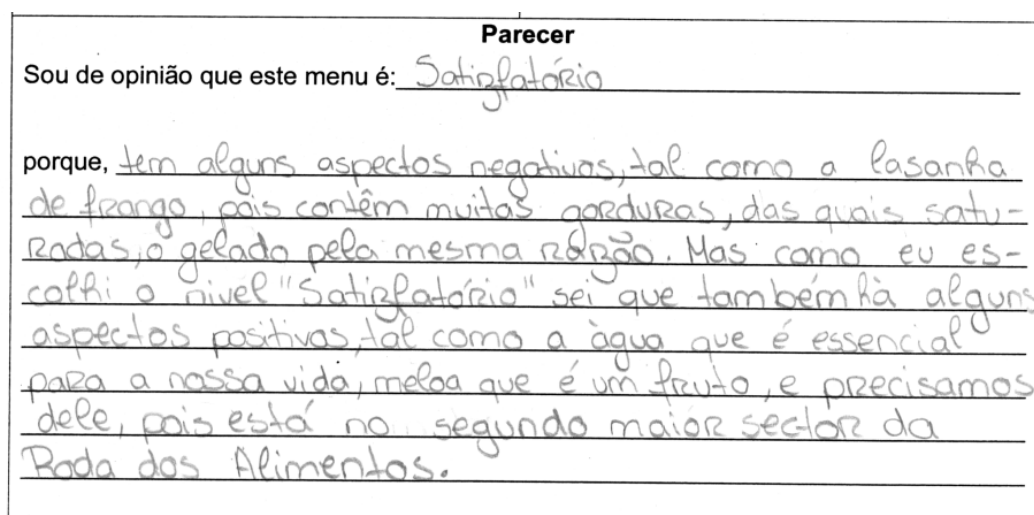 Parecer
Sou de opinião que este menu é: Satisfatório
porque, tem alguns aspectos negativos, tal como a lasanha
de frango, pois contêm muitas gorduras, das quais satu-
radas, o gelado pela mesma razão. Mas como eu es-
colhi o nivel "Satisfatório" sei que também hà alguns
aspectos positivos, tal como a àgua que é essencial
para a nossa vida, meloa que é um fruto, e precisamos
dele, pois está no segundo maior sector da
Roda dos Alimentos.